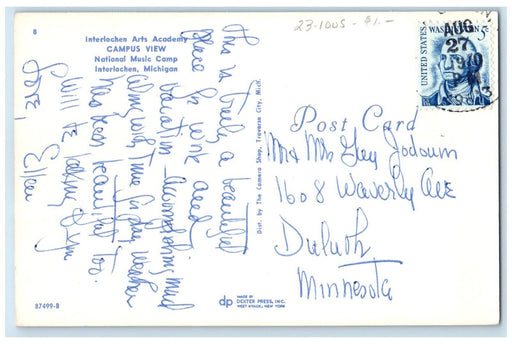 8
Interlochen Arts Academy
CAMPUS VIEW
National Music Camp
Interlochen, Michigan
23-1005 - $1.-
This is truly a beautiful
place for work and
vacation. Accomplishing much
along with time for play. Weather
has been beautiful too.
Will be talking to you
Love,
Ellen
Dist. by The Camera Shop, Traverse City, Mich.
UNITED STATES
WASHINGTON
5c
AUG
27
Post Card
Mr & Mrs Guy Jodouin
1608 Waverly Ave
Duluth
Minnesota
87499-B
dp
MADE BY
DEXTER PRESS, INC.
WEST NYACK, NEW YORK